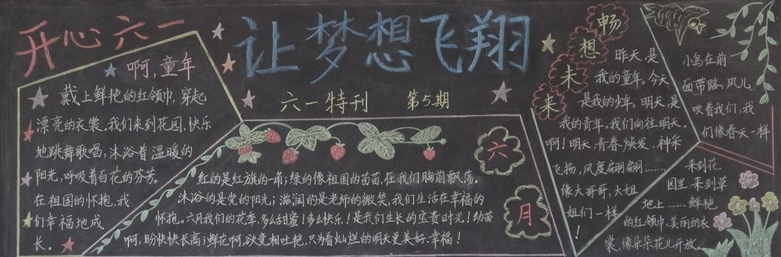 开心六一
让梦想飞翔
六一特刊 第5期
啊,童年
戴上鲜艳的红领巾,穿起
漂亮的衣裳,我们来到花园,快乐
地跳舞歌唱;沐浴着温暖的
阳光,呼吸着百花的芬芳。
在祖国的怀抱,我
们幸福地成
长。
六月
红的是红旗的一角;绿的像祖国的苗苗,在我们胸前飘荡。
沐浴的是党的阳光;滋润的是老师的微笑,我们生活在幸福的
怀抱。六月我们的花季,多么甜蜜!多么快乐!是我们生长的宝贵时光!幼苗
啊,盼快快长高;鲜花啊,欲竞相吐艳,只为看灿烂的明天更美好、幸福!
畅想未来
昨天,是
我的童年,今天
是我的少年,明天,是
我的青年,我们向往明天,
啊!明天青春焕发,神采
飞扬,风度翩翩……,
像大哥哥,大姐
姐们一样
!
小鸟在前
面带路,风儿
吹着我们,我
们像春天一样
来到花
园里,来到草
地上……鲜艳
的红领巾,美丽的衣
裳,像朵朵花儿开放。